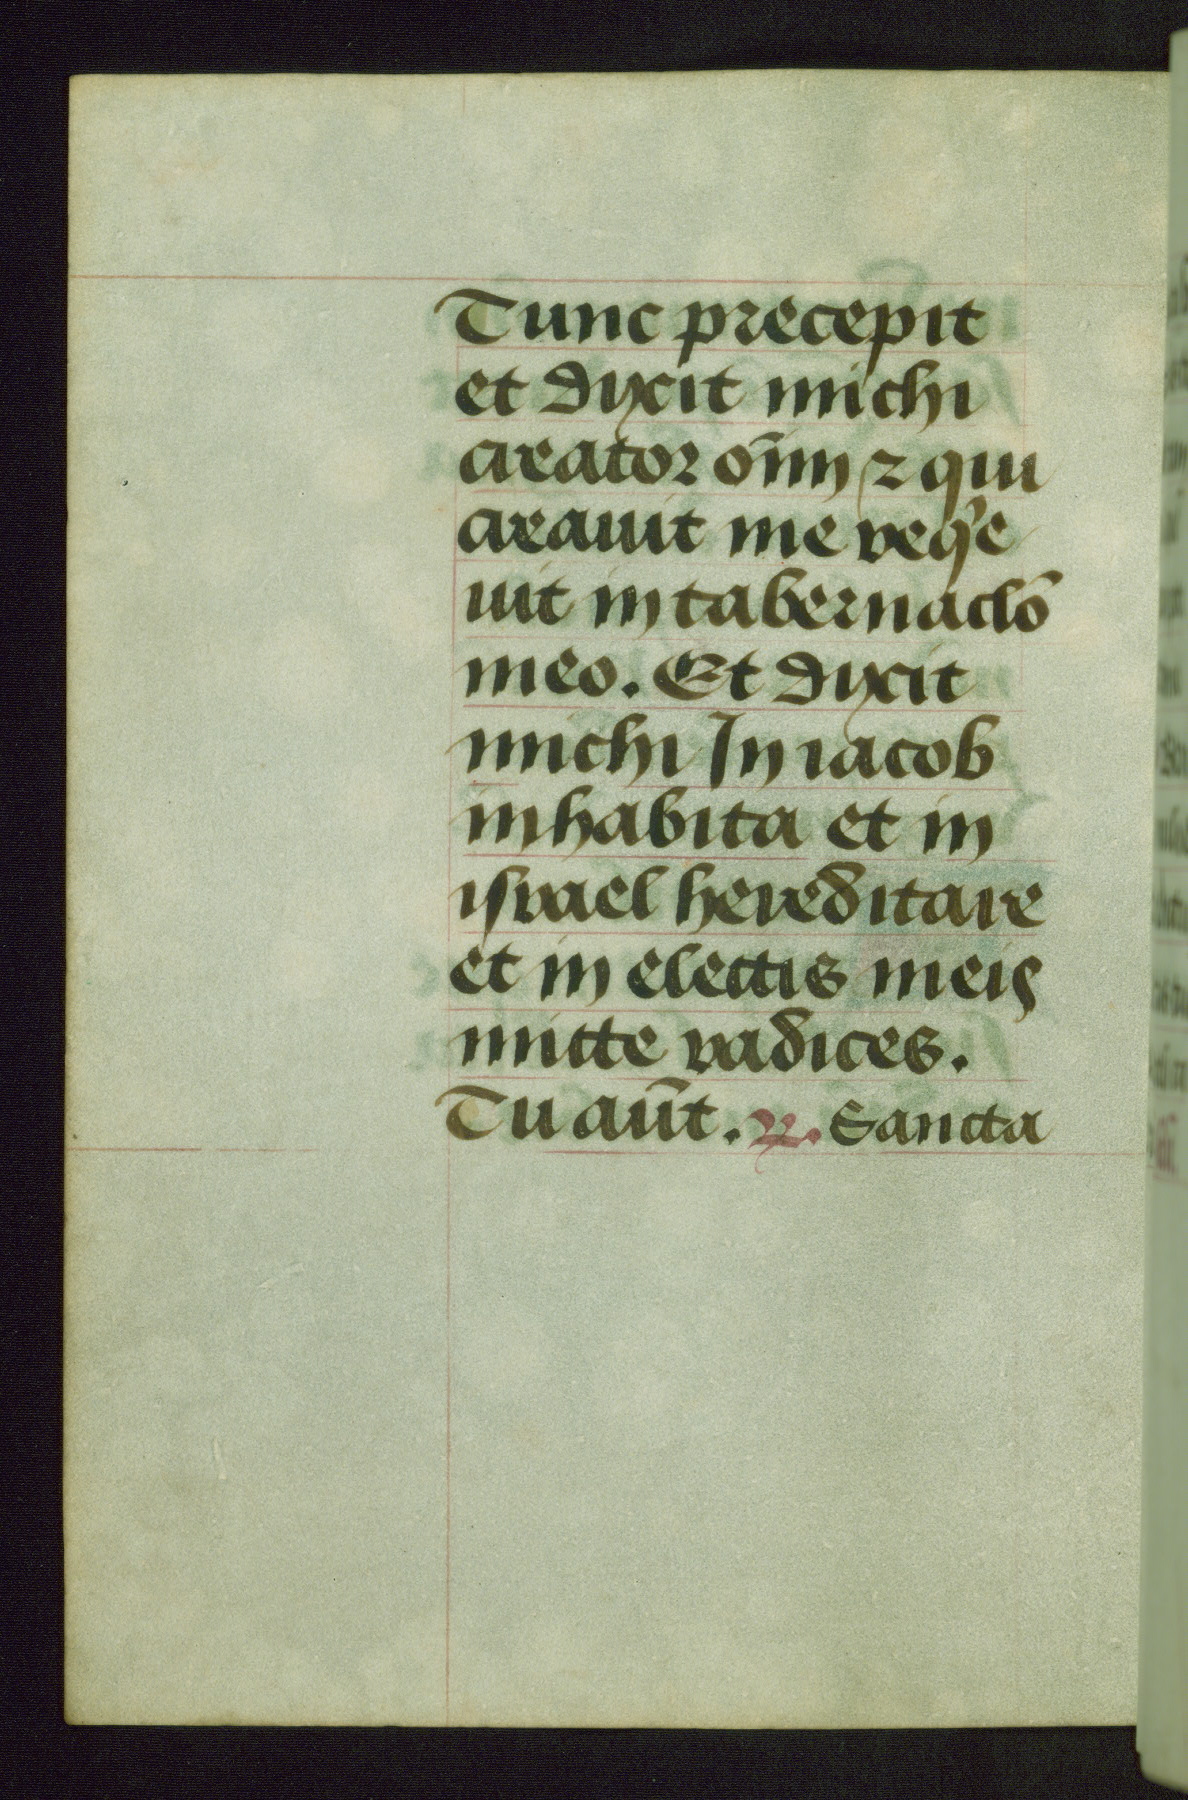 Tunc precepit
et dixit michi
creator om̄n ⁊ qui
creauit me req̾e
uit in tabernaclō
meo. Et dixit
michi In iacob
inhabita et in
israel hereditare
et in electis meis
mitte radices.
Tu aūt. ℟. Sancta